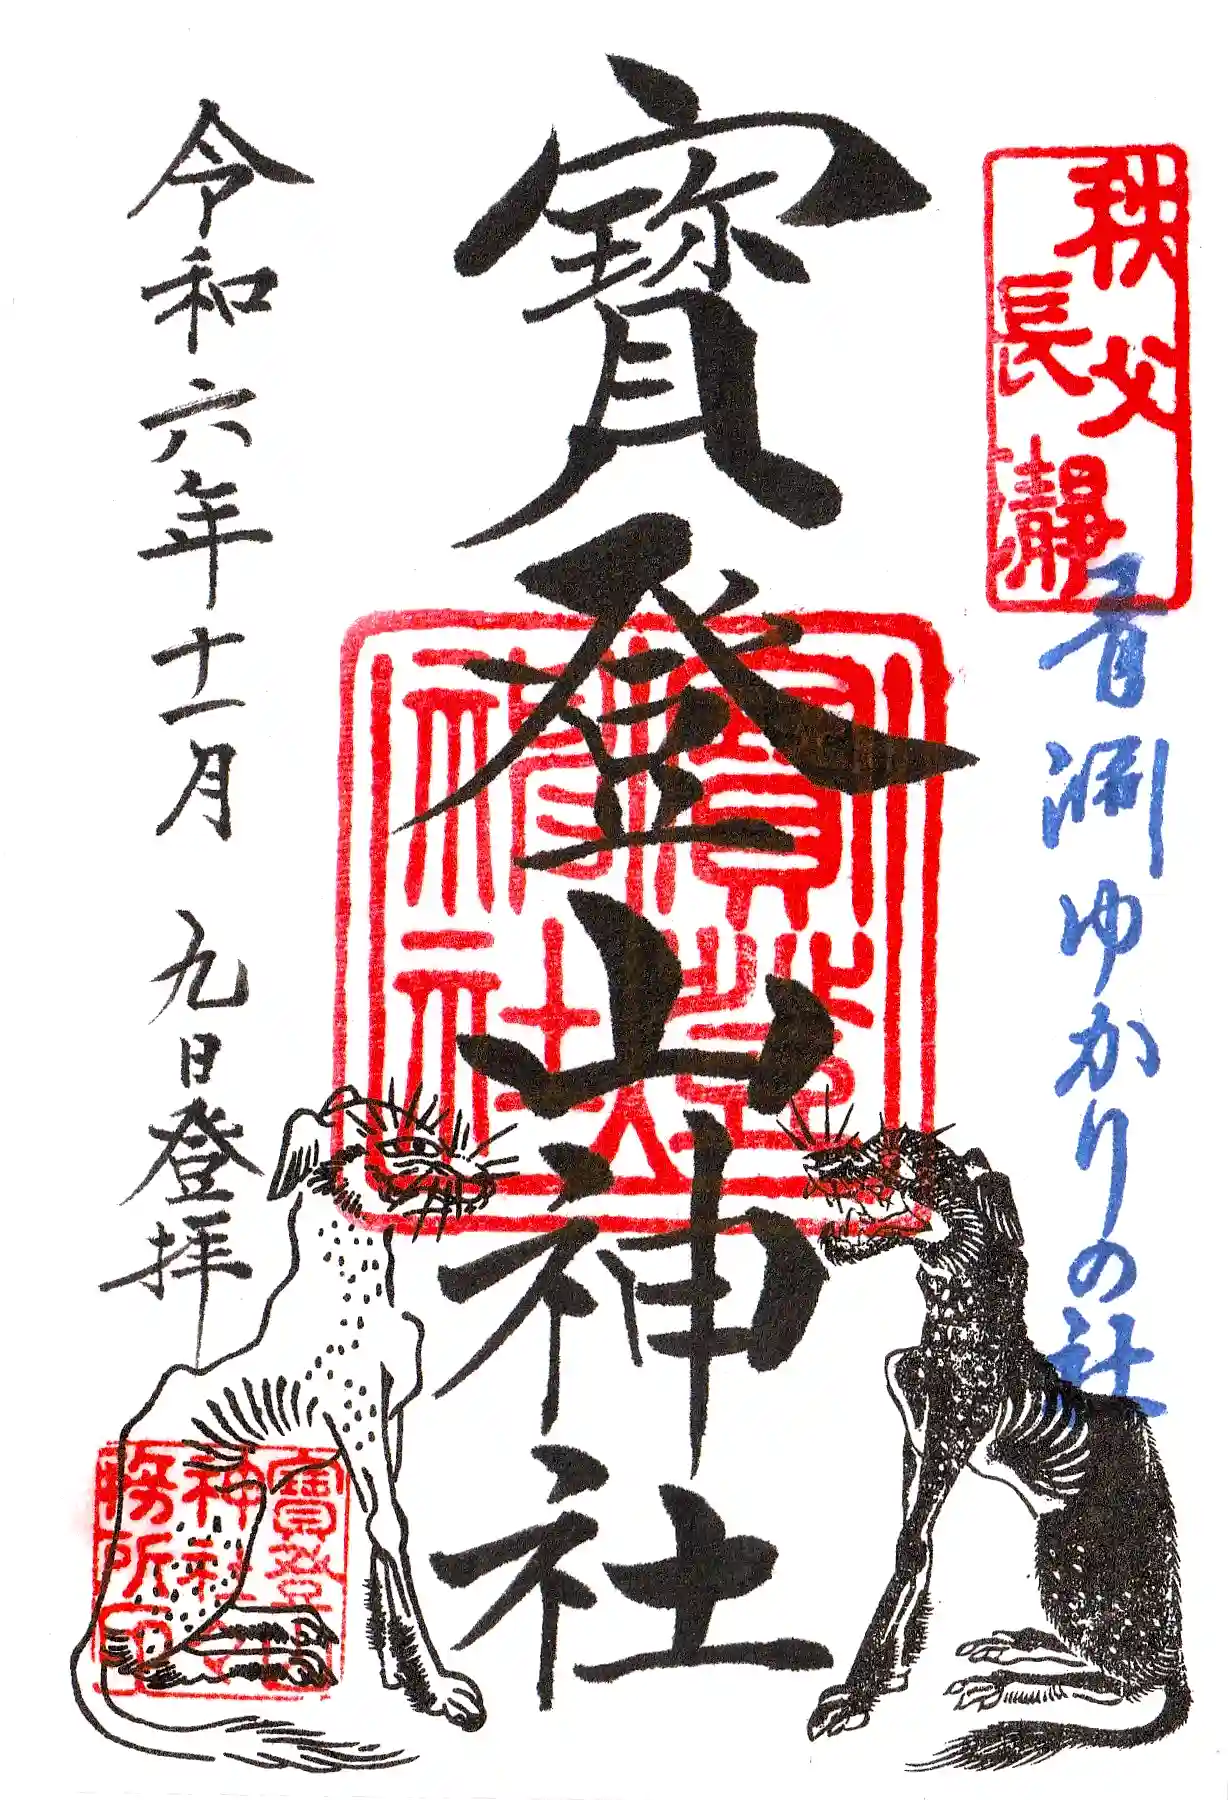 秩父
長瀞
青淵ゆかりの社
寳登山神社
寳登
神社
寳登山
神社
務所印
令和六年十一月九日登拝